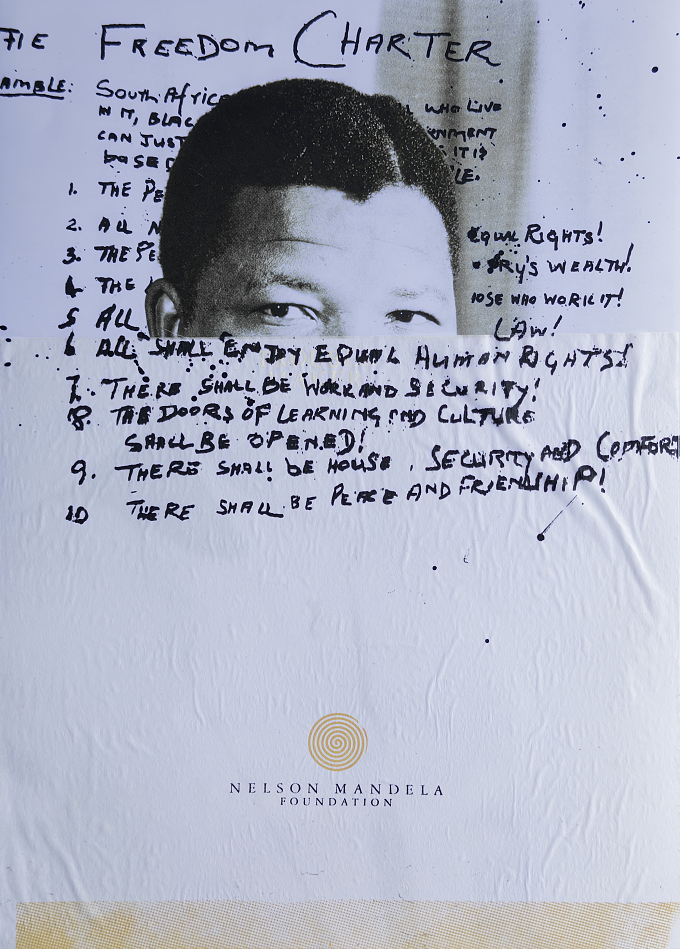 THE FREEDOM CHARTER
AMBLE: SOUTH AFRICA
WHO LIVE
IN IT, BLAC
CAN JUST
NMENT
BASED
IT IS
LE.
1. THE PE
2. ALL N
EQUAL RIGHTS!
3. THE PE
RY'S WEALTH!
4 THE
OSE WHO WORK IT!
5 ALL
LAW!
6 ALL SHALL ENJOY EQUAL HUMAN RIGHTS!
7. THERE SHALL BE WORK AND SECURITY!
8. THE DOORS OF LEARNING AND CULTURE
SHALL BE OPENED!
9. THERE SHALL BE HOUSE, SECURITY AND COMFORT
10 THERE SHALL BE PEACE AND FRIENDSHIP!
NELSON MANDELA
FOUNDATION